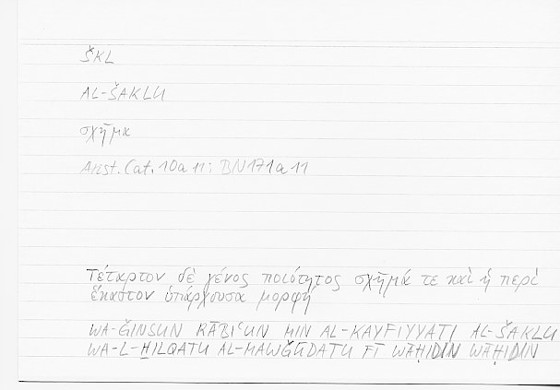 ŠKL
AL-ŠAKLU
σχῆμα
Arist. Cat. 10a11: BN171a11
Τέταρτον δὲ γένος ποιότητος σχῆμά τε καὶ ἡ περὶ
ἕκαστον ὑπάρχουσα μορφή
WA-ǦINSUN RĀBIʿUN MIN AL-KAYFIYYATI AL-ŠAKLU
WA-L-ḪILQATU AL-MAWǦŪDATU FĪ WĀḤIDIN WĀḤIDIN